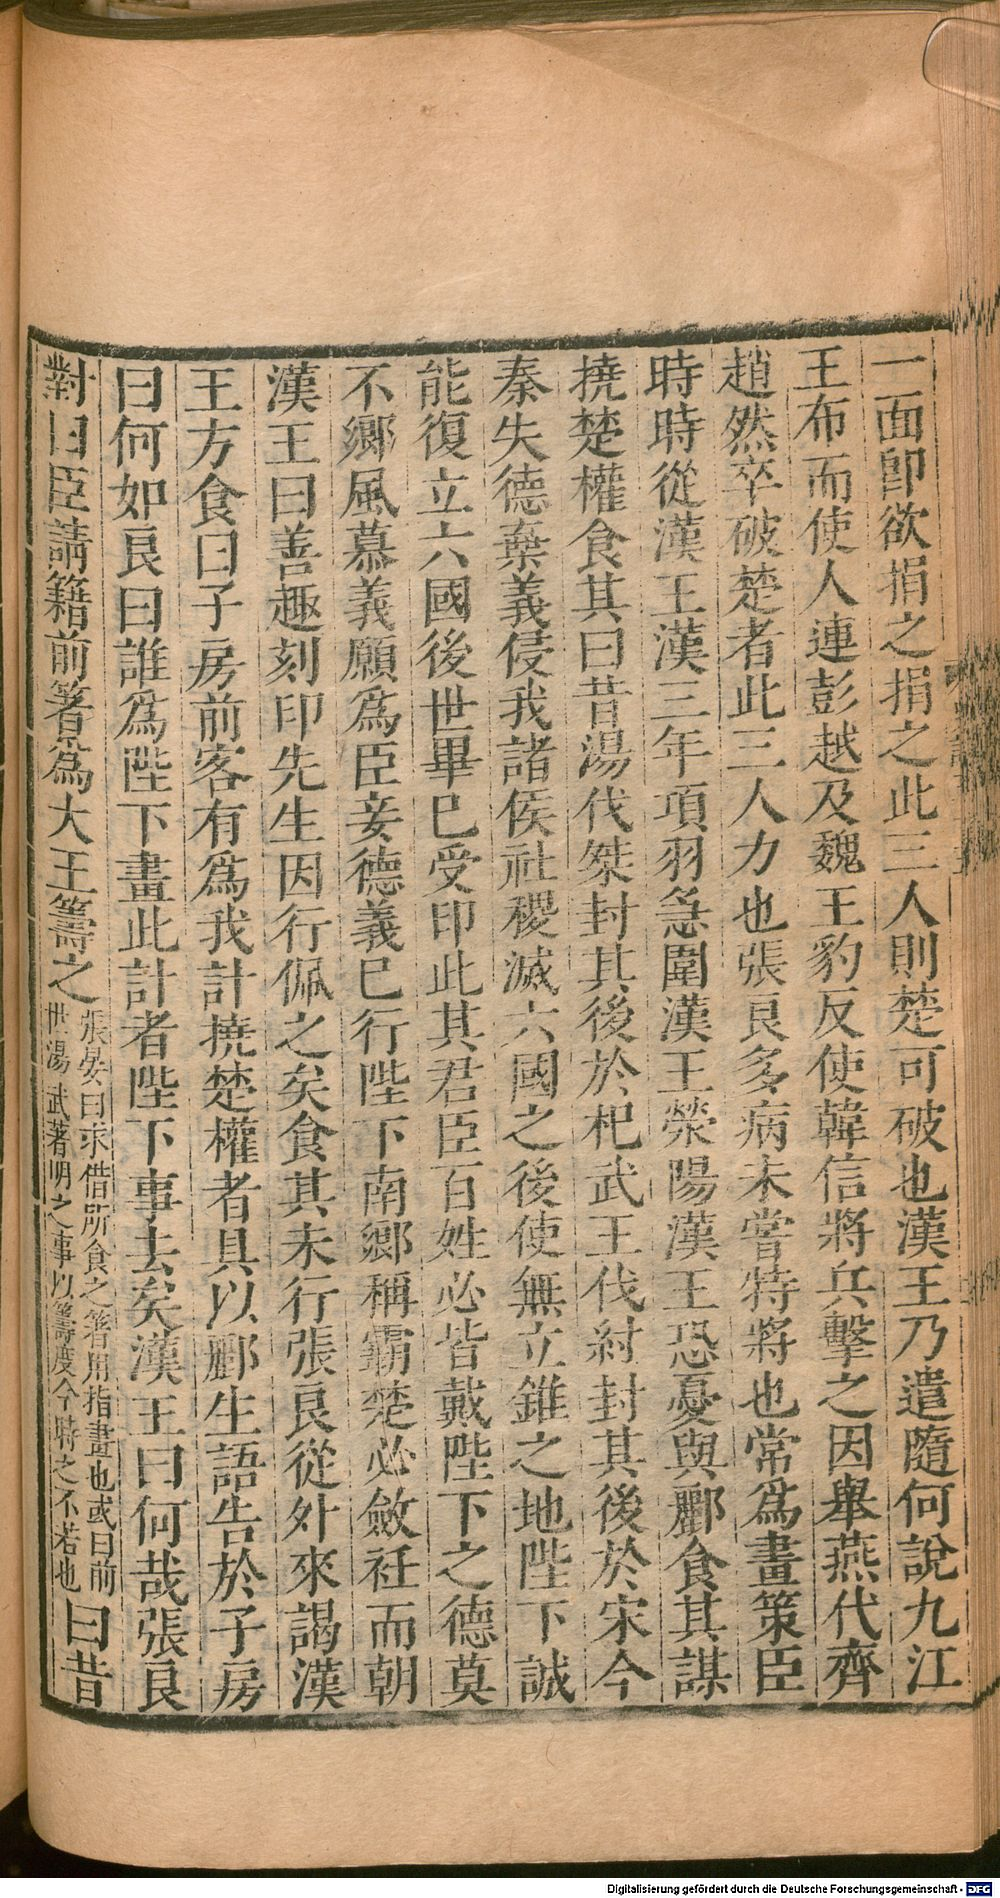 一面卽欲捐之捐之此三人則楚可破也漢王乃遣隨何說九江
王布而使人連彭越及魏王豹反使韓信將兵擊之因舉燕代齊
趙然卒破楚者此三人力也張良多病未嘗特將也常爲畫策臣
時時從漢王漢三年項羽急圍漢王滎陽漢王恐憂與酈食其謀
撓楚權食其曰昔湯伐桀封其後於杞武王伐紂封其後於宋今
秦失德棄義侵我諸侯社稷滅六國之後使無立錐之地陛下誠
能復立六國後世畢巳受印此其君臣百姓必皆戴陛下之德莫
不鄉風慕義願爲臣妾德義巳行陛下南鄉稱霸楚必斂衽而朝
漢王曰善趣刻印先生因行佩之矣食其未行張良從外來謁漢
王方食曰子房前客有爲我計撓楚權者具以酈生語告於子房
曰何如良曰誰爲陛下畫此計者陛下事去矣漢王曰何哉張良
對曰臣請籍前箸爲大王籌之張晏曰求借所食之箸用指畫也或曰前世湯武著明之事以籌度今時之不若也曰昔
Digitalisierung gefördert durch die Deutsche Forschungsgemeinschaft - DFG